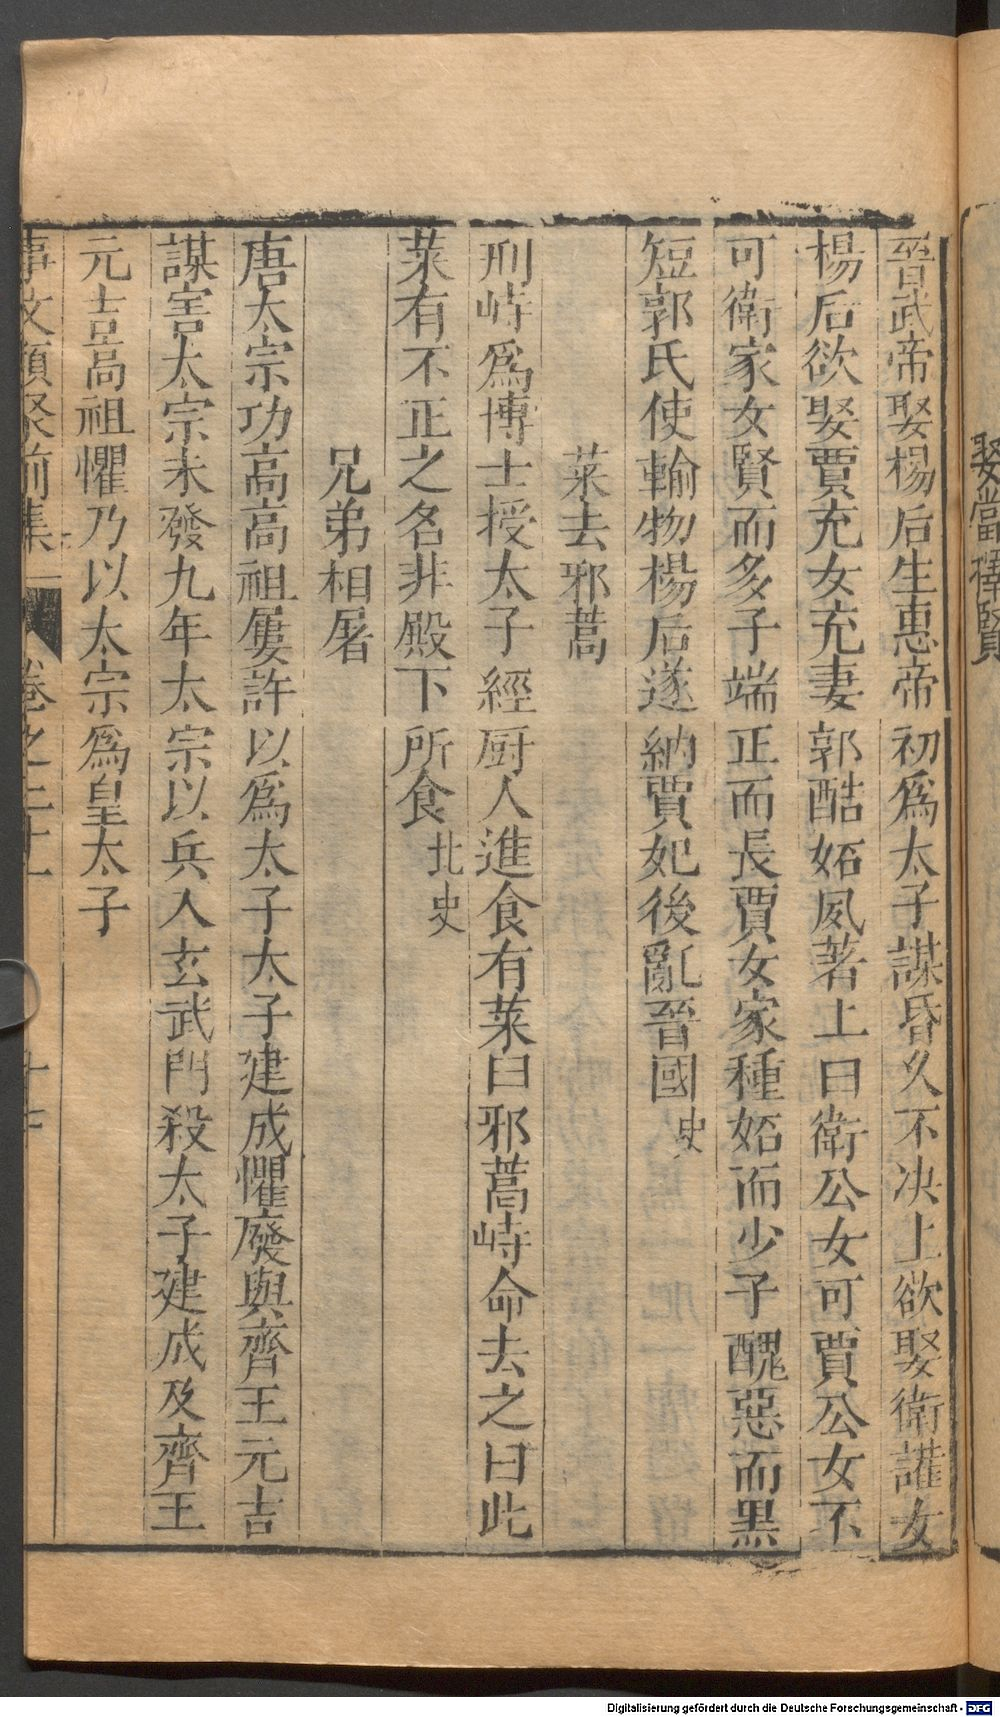 娶當擇賢
晉武帝娶楊后生惠帝初爲太子謀昏久不决上欲娶衛瓘女
楊后欲娶賈充女充妻郭酷妬夙著上曰衛公女可賈公女不
可衛家女賢而多子端正而長賈女家種妬而少子醜惡而黒
短郭氏使輸物楊后遂納賈妃後亂晉國史
菜去邪蒿
刑峙爲博士授太子經厨人進食有菜曰邪蒿峙命去之曰此
菜有不正之名非殿下所食北史
兄弟相屠
唐太宗功高高祖屢許以爲太子太子建成懼廢與齊王元吉
謀害太宗未發九年太宗以兵入玄武門殺太子建成及齊王
元吉高祖懼乃以太宗爲皇太子
事文類聚前集 卷之二十
Digitalisierung gefördert durch die Deutsche Forschungsgemeinschaft - DFG